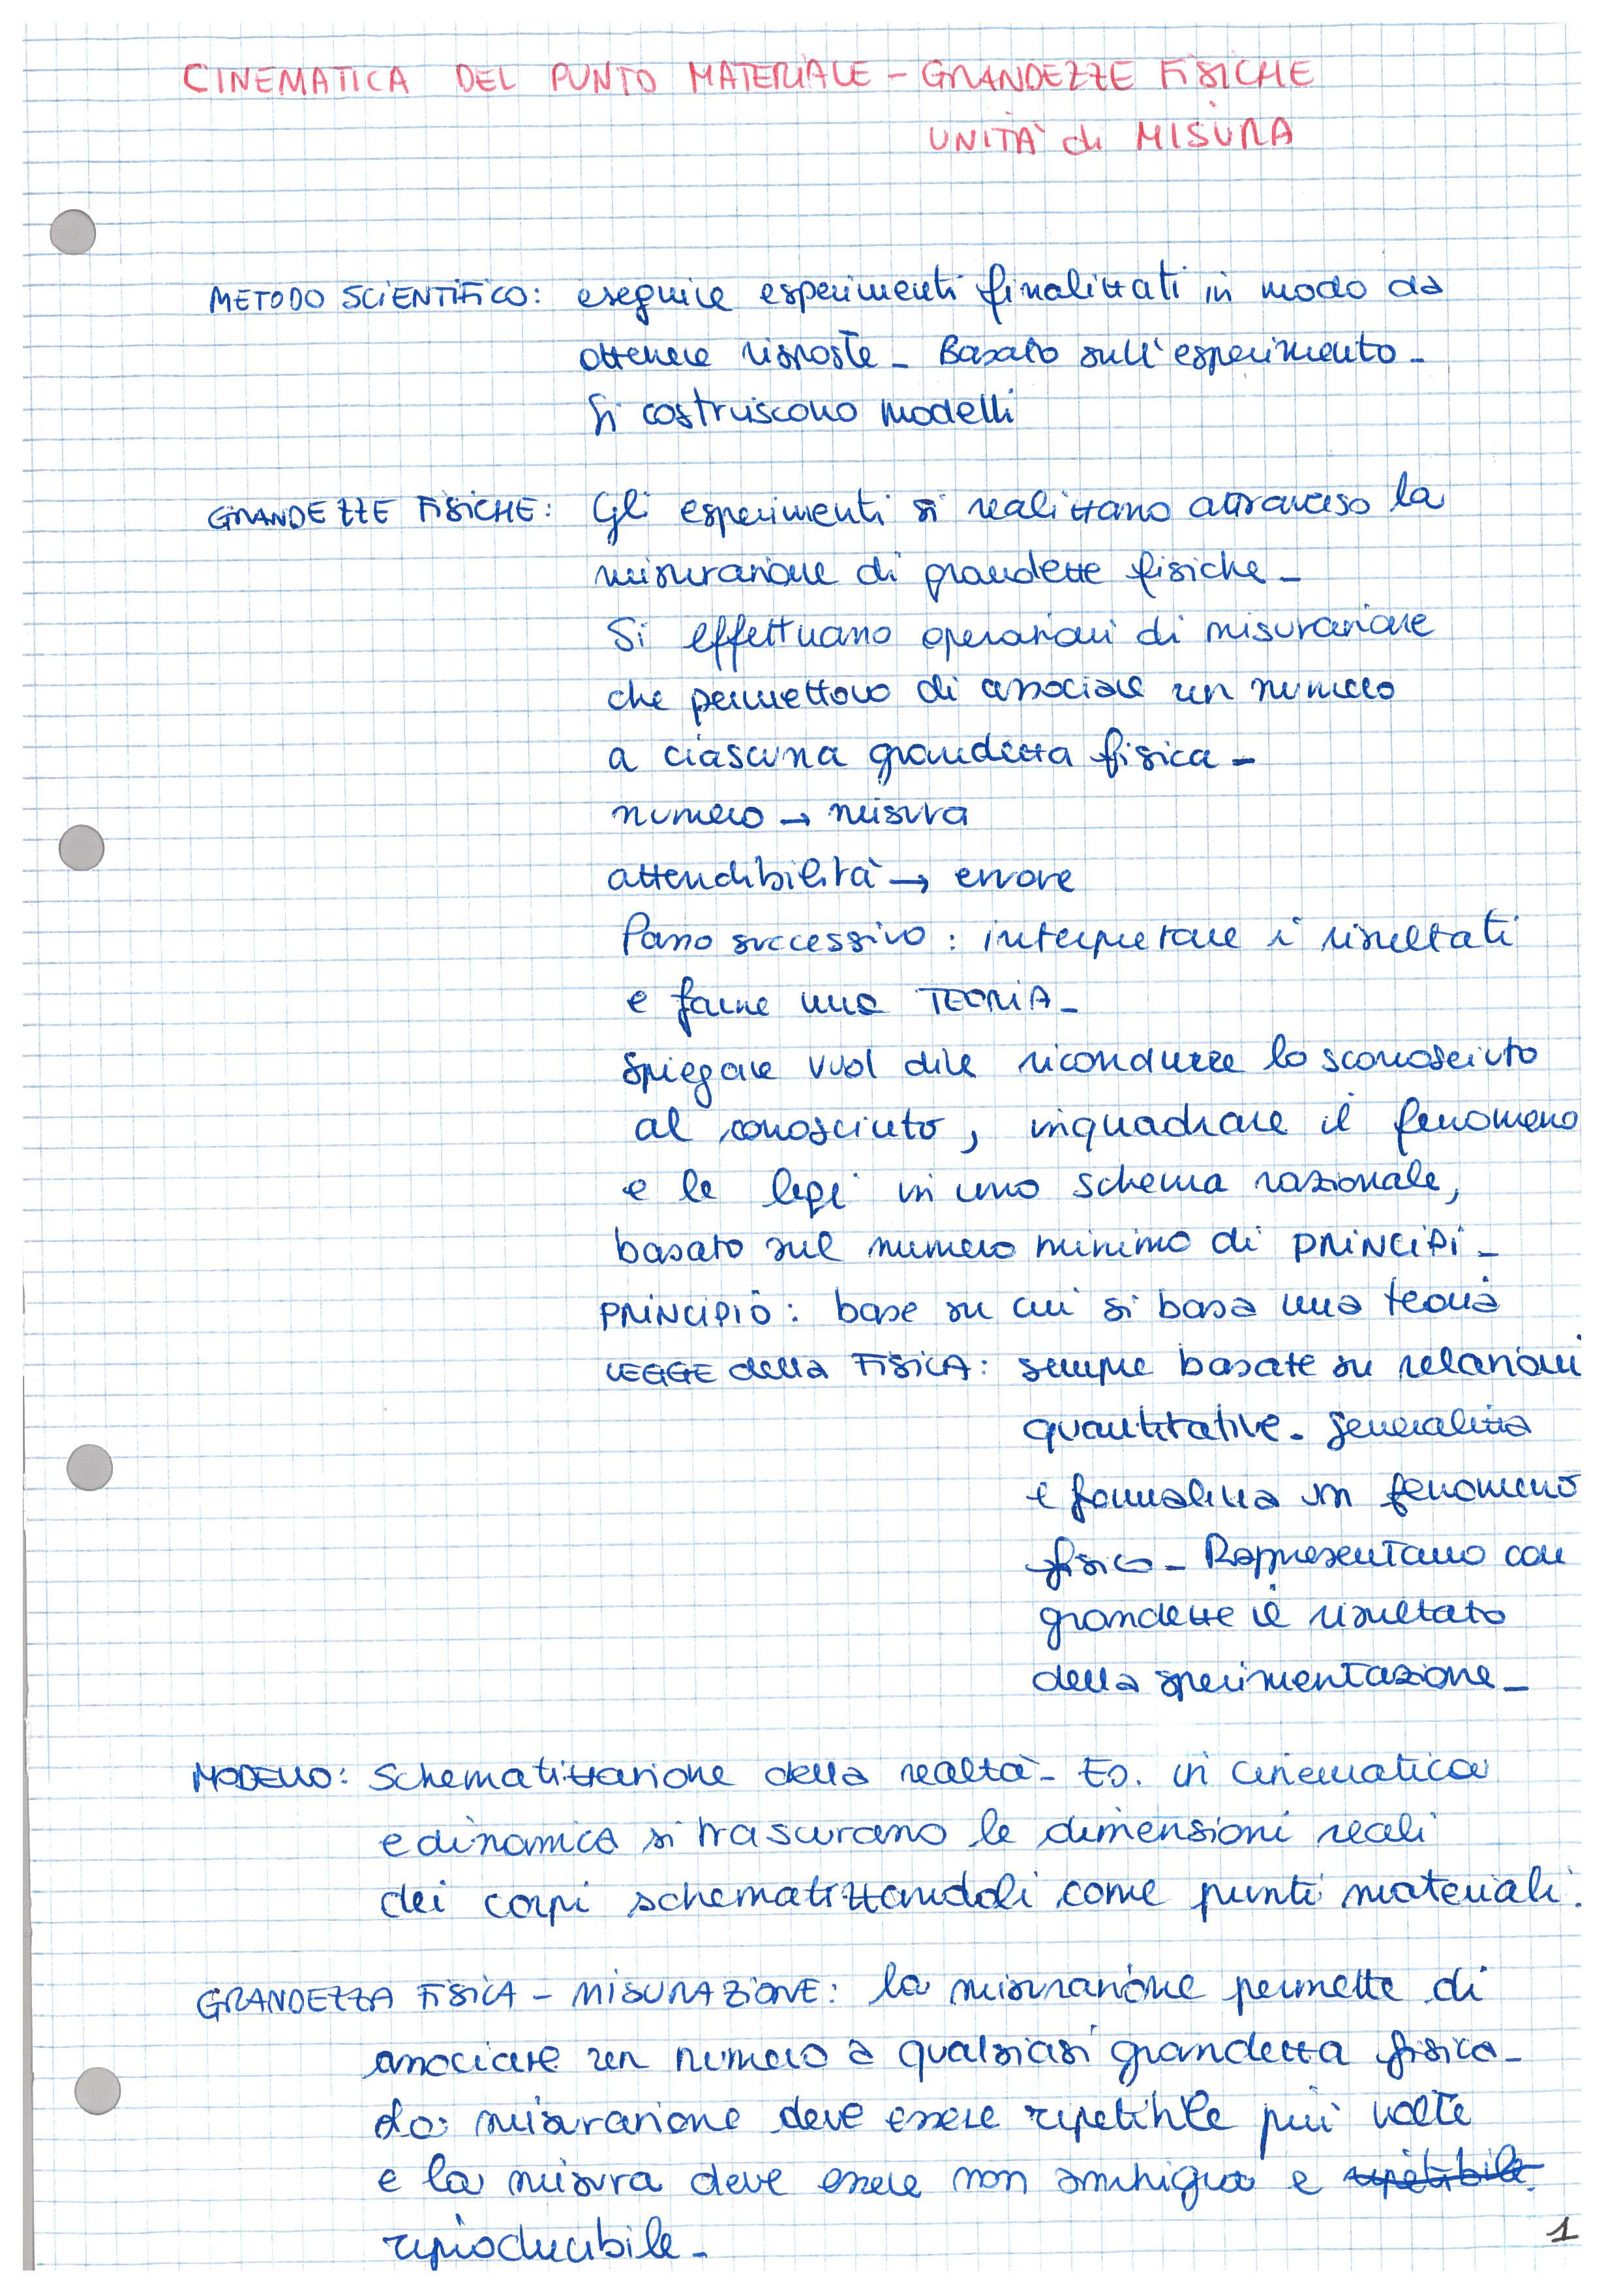 CINEMATICA DEL PUNTO MATERIALE - GRANDEZZE FISICHE
UNITÀ di MISURA
METODO SCIENTIFICO: eseguire esperimenti finalizzati in modo da
ottenere risposte - Basato sull'esperimento -
Si costruiscono modelli
GRANDEZZE FISICHE: Gli esperimenti si realizzano attraverso la
misurazione di grandezze fisiche -
Si effettuano operazioni di misurazione
che permettono di associare un numero
a ciascuna grandezza fisica -
numero → misura
attendibilità → errore
Passo successivo: interpretare i risultati
e farne una TEORIA -
Spiegare vuol dire ricondurre lo sconosciuto
al conosciuto, inquadrare il fenomeno
e le leggi in uno schema razionale,
basato sul numero minimo di PRINCIPI -
PRINCIPIO: base su cui si basa una teoria
LEGGE della FISICA: sempre basate su relazioni
quantitative - generalizza
e formalizza un fenomeno
fisico - Rappresentano con
grandezze il risultato
della sperimentazione -
MODELLO: Schematizzazione della realtà - Es. in cinematica
e dinamica si trascurano le dimensioni reali
dei corpi schematizzandoli come punti materiali.
GRANDEZZA FISICA - MISURAZIONE: la misurazione permette di
associare un numero a qualsiasi grandezza fisica -
La misurazione deve essere ripetibile più volte
e la misura deve essere non ambigua e ripetibile
riproducibile -
1